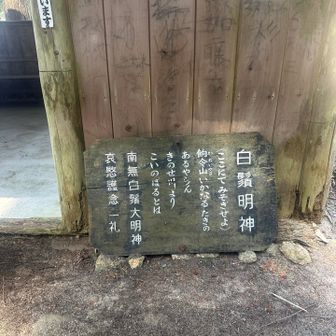 います
白鬚明神
ここにてみそきせよ
伯母山にかなるたきの
あるやらん
きのせ川より
こいのはるとは
南無白鬚大明神
哀愍護念 一礼